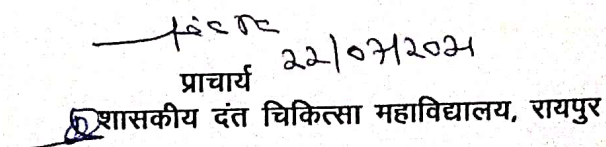 22/07/2021
प्राचार्य
शासकीय दंत चिकित्सा महाविद्यालय, रायपुर